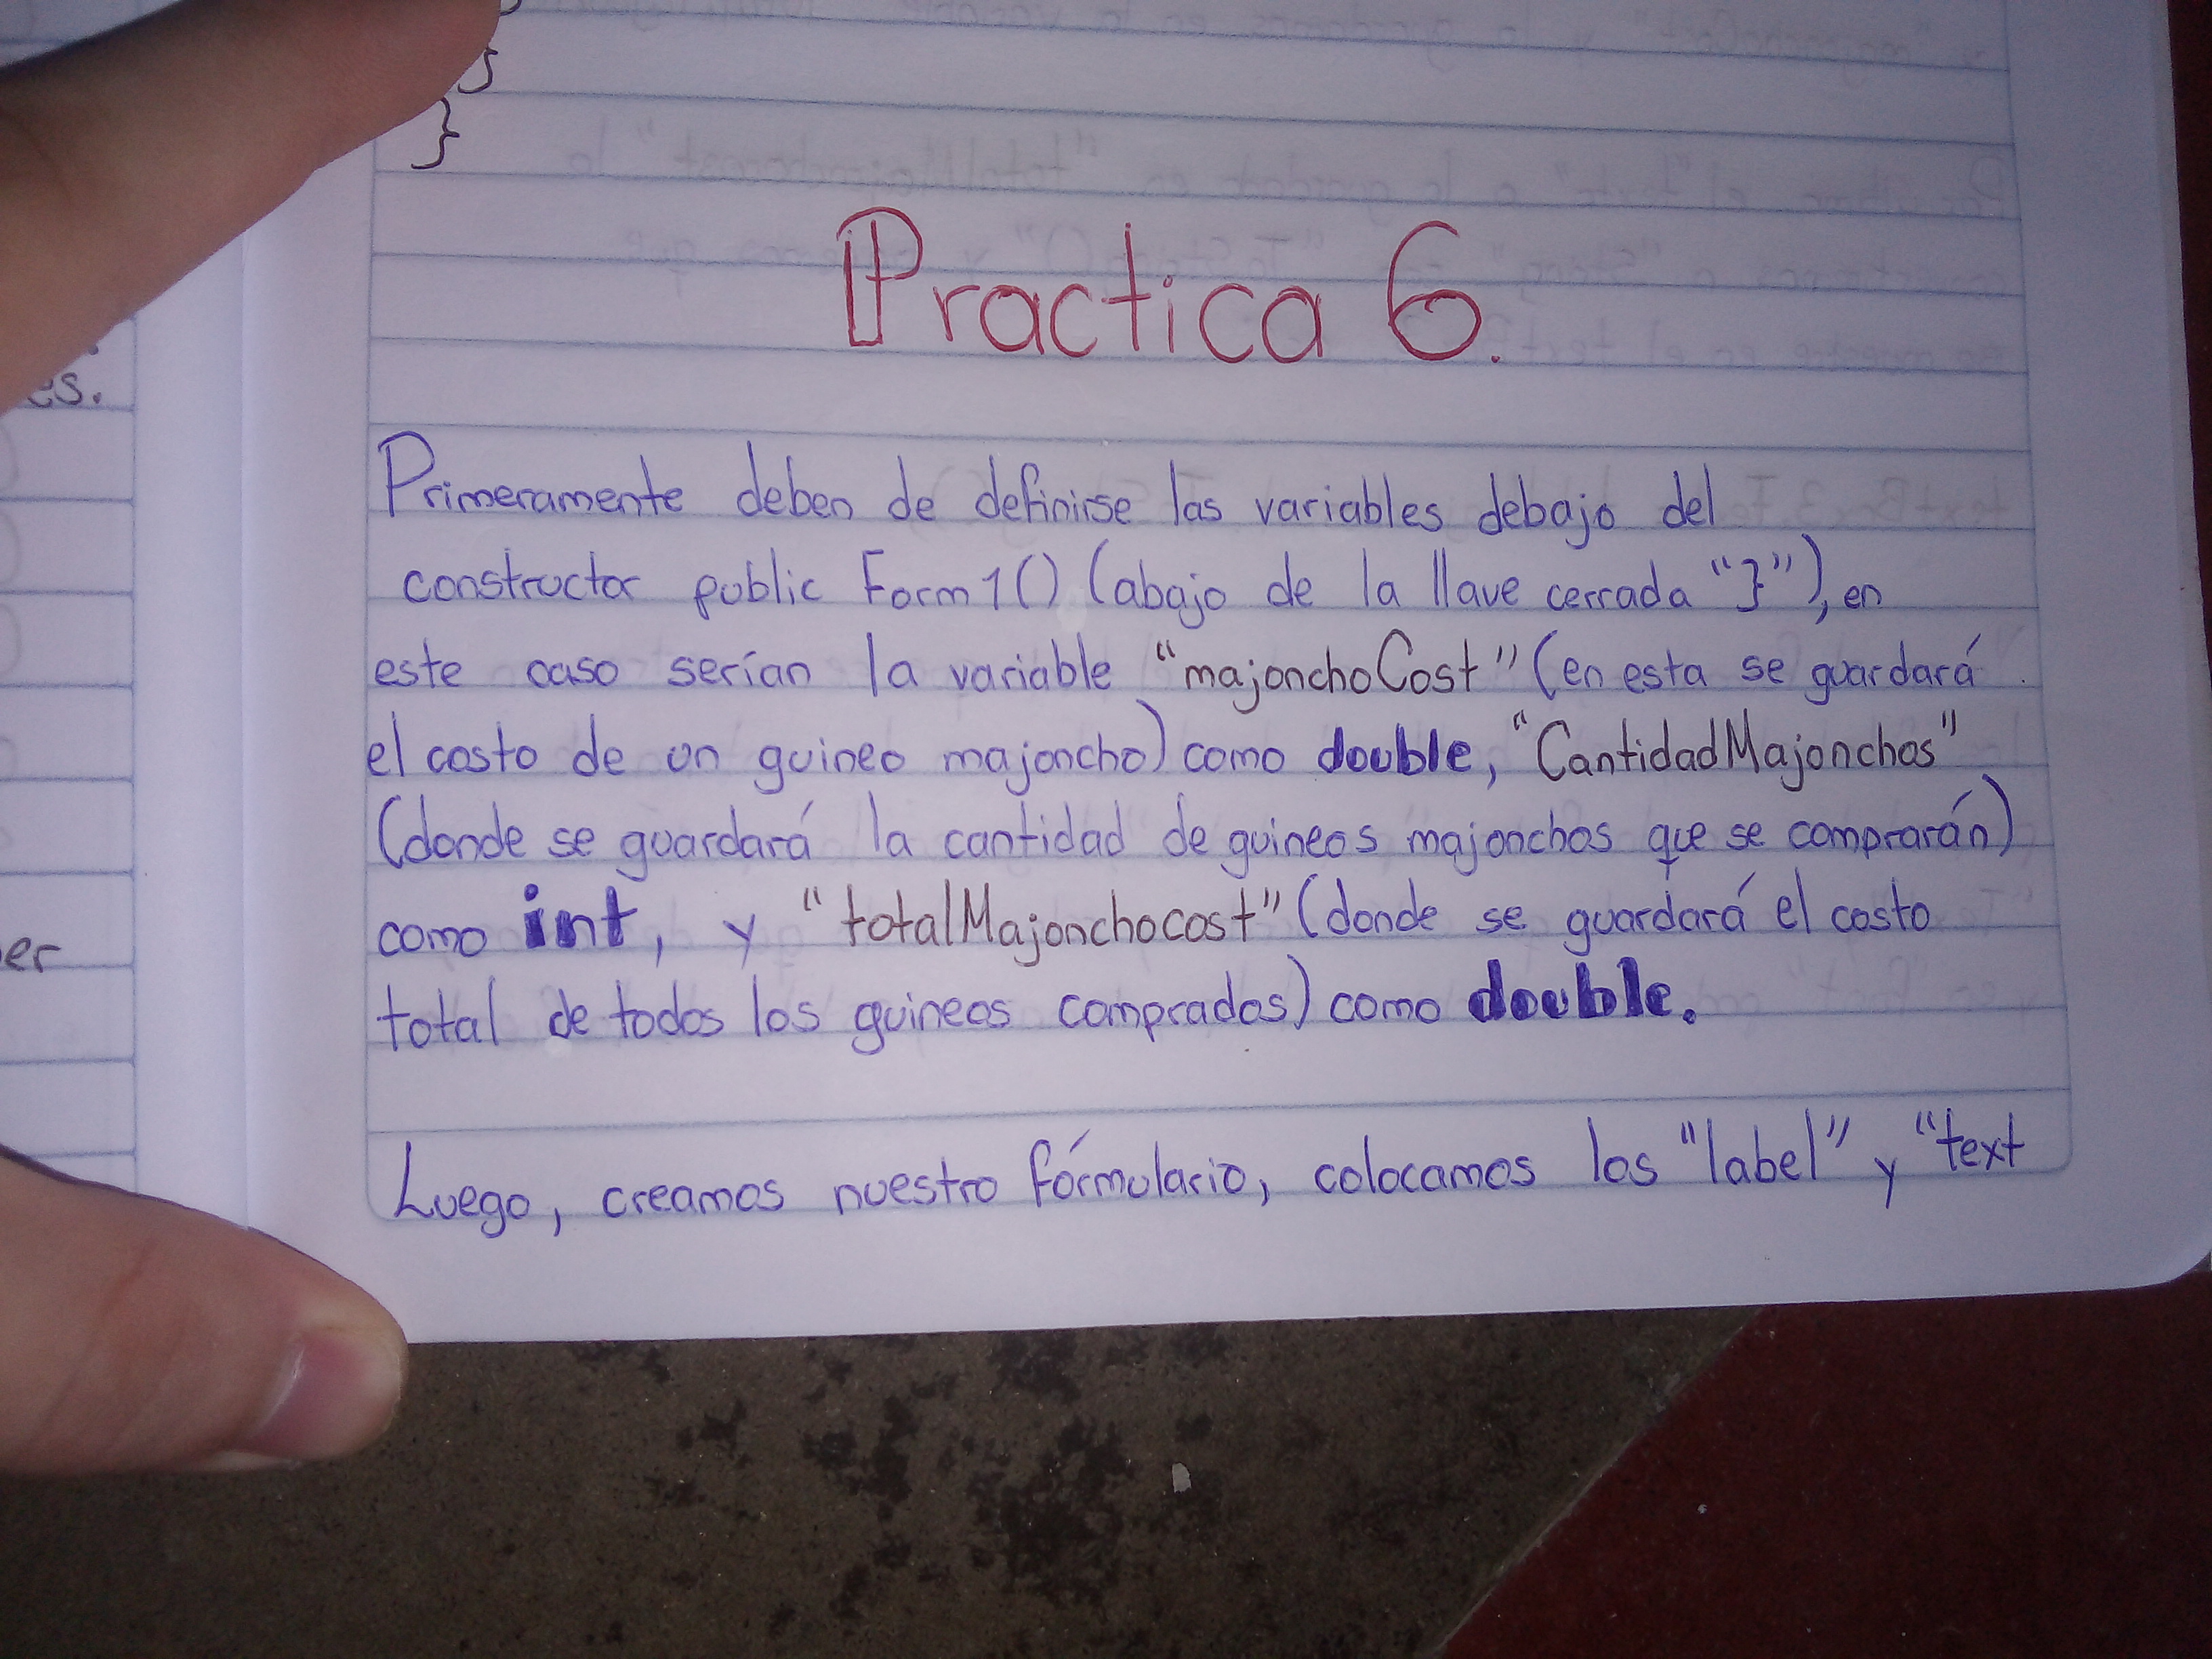 }
}
Practica 6.
Primeramente deben de definirse las variables debajo del
constructor public Form1() (abajo de la llave cerrada "}"), en
este caso serían la variable "majonchoCost" (en esta se guardará
el costo de un guineo majoncho) como double, "CantidadMajonchos"
(donde se guardará la cantidad de guineos majonchos que se comprarán)
como int, y "totalMajonchocost" (donde se guardará el costo
total de todos los guineos comprados) como double.
Luego, creamos nuestro fórmulario, colocamos los "label" y "text
es.
er